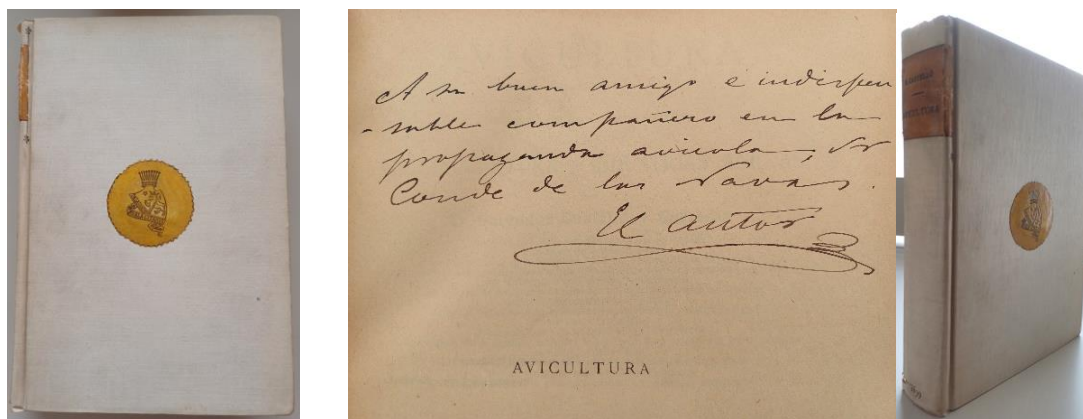 A su buen amigo e indispen
-sable compañero en la
propaganda avicola, Sr
Conde de las Navas.
El autor
AVICULTURA
AVICULTURA